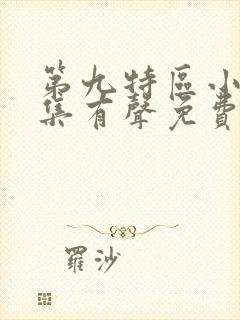 第九特區小
集有聲免費
羅沙